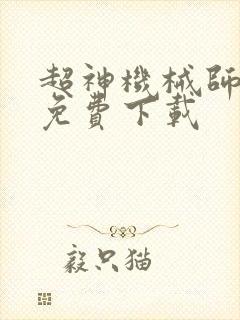 超神機械師
免費下載
毅只猫